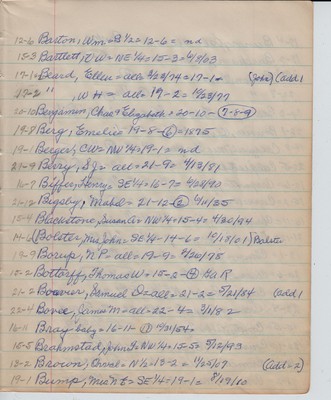 12-6 Barton, Wm = B½ = 12-6 = nd
15-3 Bartlett, R W = NE¼ = 15-3 = 4/9/03
17-1 Beard, Ellen = all = 3/23/74 = 17-1 = (John) (Add 1
17-2 " , W H = all = 17-2 = 12/23/77
20-10 Benjamin, Chas & Elizabeth = 20-10 = 7-8-9
19-8 Berg, Emelie = 19-8 = 6 = 1875
19-1 Berger, CW = NW¼ = 19-1 = nd
21-9 Bury, S J = all = 21-9 = 4/13/81
16-7 Biffer, Henry = SE¼ = 16-7 = 4/22/90
21-12 Bigsby, Mabel = 21-12 = 2 = 4/11/35
15-4 Blackstone, Susan A = NW¼ = 15-4 = 4/30/94
14-6 (Bolster, Mrs John = SE¼ = 14-6 = 10/18/01) Bolster
19-9 Borup, N P = all = 19-9 = 2/20/75
15-2 Bottorff, Thomas W = 15-2 = 4 G a R
21-2 Bouvier, Samuel D = all = 21-2 = 5/21/54 (add 1
22-4 Bovee, James M = all = 22-4 = 3/1/82
16-11 Bray baby = 16-11 = 1 = 12/31/54
15-5 Brahmstad, John F = NW¼ = 15-5 = 5/12/93
13-2 Brown, Orval = N½ = 13-2 = 1/25/07 (Add = 2)
19-1 Bump, Mrs N E = SE¼ = 19-1 = 8/19/10